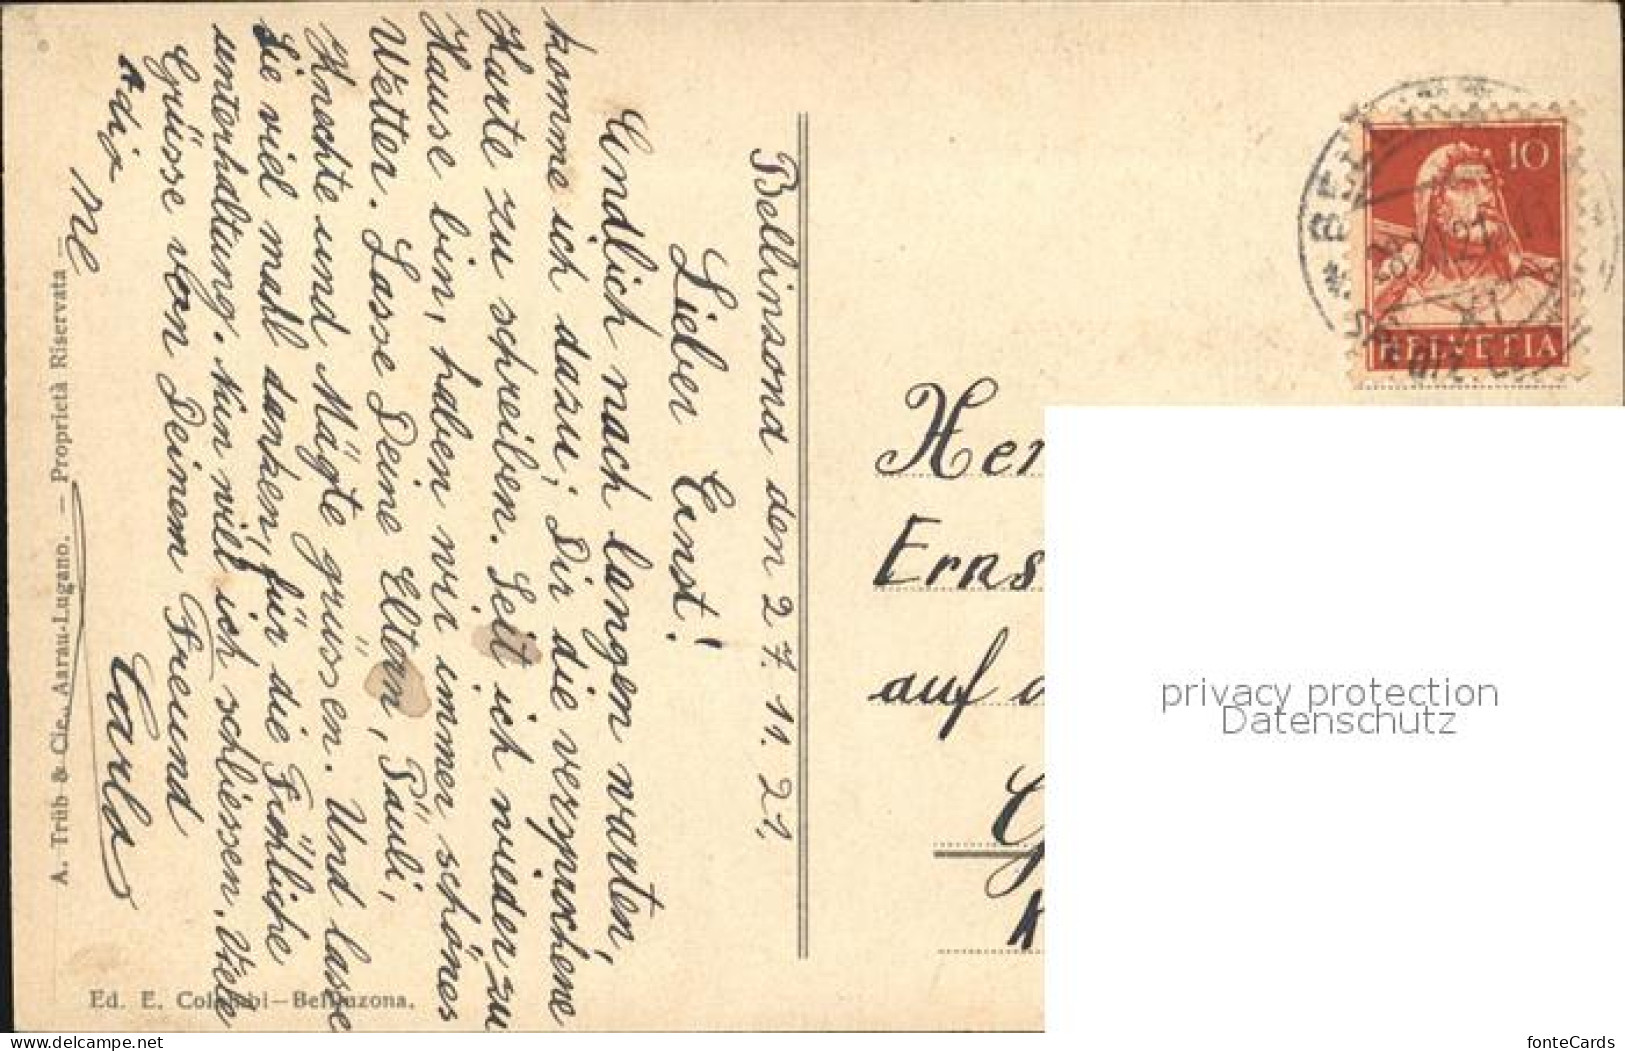 Bellinsona den 27. 11. 21.
Lieber Ernst!
Endlich nach langen warten,
komme ich dazu; Dir die versprochene
Karte zu schreiben. Seit ich wieder zu
Hause bin, haben wir immer schönes
Wetter. Lasse Deine Eltern, Päuli,
Knechte und Mägte grüssen. Und lasse
Sie viel mahl danken, für die Fröhliche
unterhaltung. Nun will ich schliessen. Viele
Grüsse von Deinem Freund
Adio
Carlo
A. Trüb & Cie., Aarau-Lugano. — Proprietà Riservata —
Ed. E. Colombi — Bellinzona.
10
HELVETIA
Her
Erns
auf d
privacy protection
Datenschutz
www.delcampe.net
fonteCards